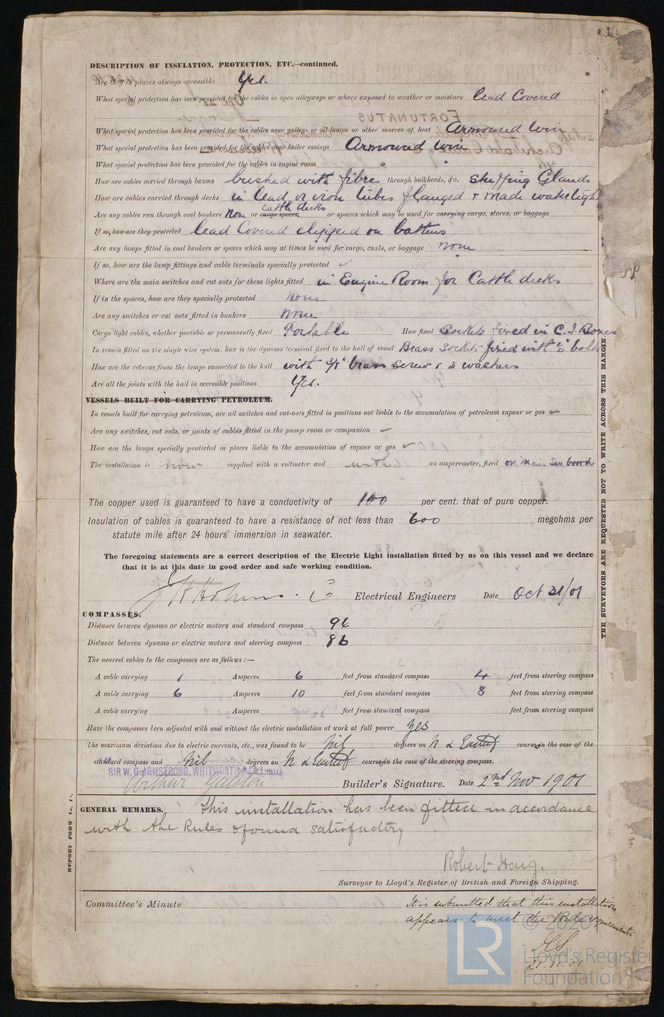 DESCRIPTION OF INSULATION, PROTECTION, ETC.—continued.
Are they in places always accessible Yes.
What special protection has been provided for the cables in open alleyways or where exposed to weather or moisture Lead Covered
What special protection has been provided for the cables near galley or oil lamps or other sources of heat Armoured Wire
What special protection has been provided for the cables near boiler casings Armoured Wire
What special protection has been provided for the cables in engine room " "
How are cables carried through beams bushed with fibre through bulkheads, &c. Stuffing Glands
How are cables carried through decks in lead or iron tubes flanged & made watertight
Cattle decks
Are any cables run through coal bunkers None or cargo spaces or spaces which may be used for carrying cargo, stores, or baggage
If so, how are they protected Lead Covered clipped on battens
Are any lamps fitted in coal bunkers or spaces which may at times be used for cargo, coals, or baggage none
If so, how are the lamp fittings and cable terminals specially protected
Where are the main switches and cut outs for these lights fitted in Engine Room for Cattle decks
If in the spaces, how are they specially protected none
Are any switches or cut outs fitted in bunkers none
Cargo light cables, whether portable or permanently fixed Portable How fixed Sockets fixed in C.I. Boxes
In vessels fitted on the single wire system, how is the dynamo terminal fixed to the hull of vessel Brass Sockets fixed with ½" bolts
How are the returns from the lamps connected to the hull with 3/8" brass screw & 2 washers
Are all the joints with the hull in accessible positions Yes.
VESSELS BUILT FOR CARRYING PETROLEUM.
In vessels built for carrying petroleum, are all switches and cut-outs fitted in positions not liable to the accumulation of petroleum vapour or gas
Are any switches, cut outs, or joints of cables fitted in the pump room or companion
How are the lamps specially protected in places liable to the accumulation of vapour or gas
The installation is now supplied with a voltmeter and with an amperemeter, fixed on Main Swboard
The copper used is guaranteed to have a conductivity of 100 per cent. that of pure copper.
Insulation of cables is guaranteed to have a resistance of not less than 600 megohms per
statute mile after 24 hours' immersion in seawater.
The foregoing statements are a correct description of the Electric Light installation fitted by us on this vessel and we declare
that it is at this date in good order and safe working condition.
Electrical Engineers Date Oct 31/01
COMPASSES.
Distance between dynamo or electric motors and standard compass 96
Distance between dynamo or electric motors and steering compass 86
The nearest cables to the compasses are as follows:—
A cable carrying 1 Amperes 6 feet from standard compass 4 feet from steering compass
A cable carrying 6 Amperes 10 feet from standard compass 8 feet from steering compass
A cable carrying Amperes feet from standard compass feet from steering compass
Have the compasses been adjusted with and without the electric installation at work at full power Yes
The maximum deviation due to electric currents, etc., was found to be Nil degrees on N & East of course in the case of the
standard compass and Nil degrees on N & East of course in the case of the steering compass.
SIR W. G. ARMSTRONG, WHITWORTH & Co. LIMITED
Builder's Signature. Date 2nd Nov 1901
GENERAL REMARKS. This installation has been fitted in accordance
with the Rules & found satisfactory
Robert Haig.
Surveyor to Lloyd's Register of British and Foreign Shipping.
Committee's Minute
It is submitted that this installation
appears to meet the Rule requirements
21.11.01
THE SURVEYORS ARE REQUESTED NOT TO WRITE ACROSS THIS MARGIN
FORTUNATUS
© 2020
LR
Lloyd's Register
Foundation